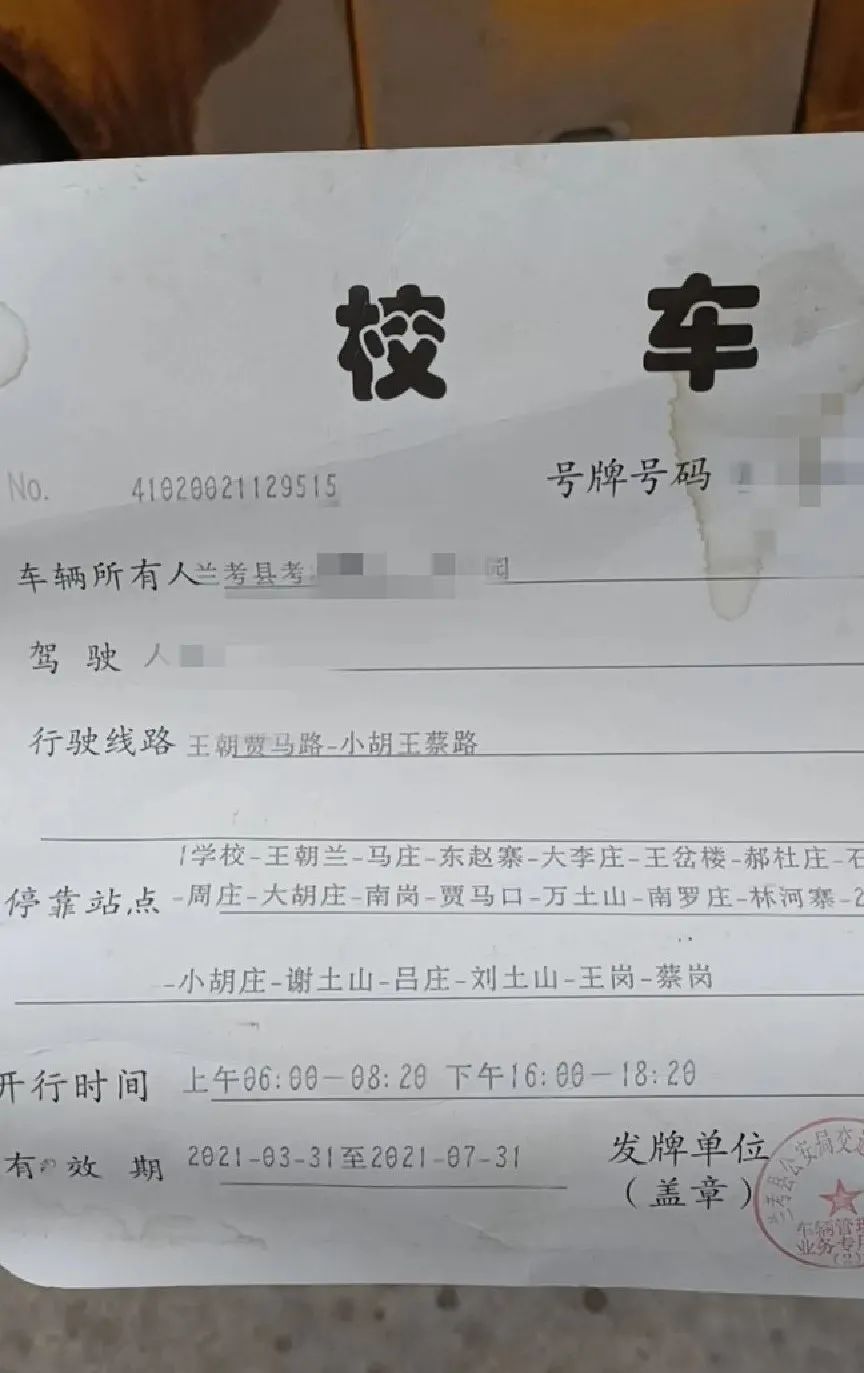 校 车
No. 41020021129515 号牌号码
车辆所有人 兰考县考 园
驾驶人
行驶线路 王朝贾马路-小胡王蔡路
学校-王朝兰-马庄-东赵寨-大李庄-王岔楼-郝杜庄-石
停靠站点 -周庄-大胡庄-南岗-贾马口-万土山-南罗庄-林河寨-2
-小胡庄-谢土山-吕庄-刘土山-王岗-蔡岗
开行时间 上午06:00-08:20 下午16:00-18:20
有效期 2021-03-31至2021-07-31 发牌单位
（盖章）
兰考县公安局交
车辆管理
业务专用
(2)